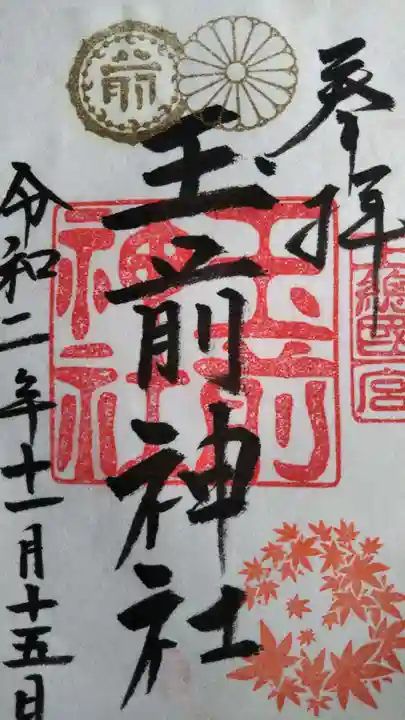 参拝
上総国一宮
玉前神社
玉前神社
前
令和二年十一月十五日